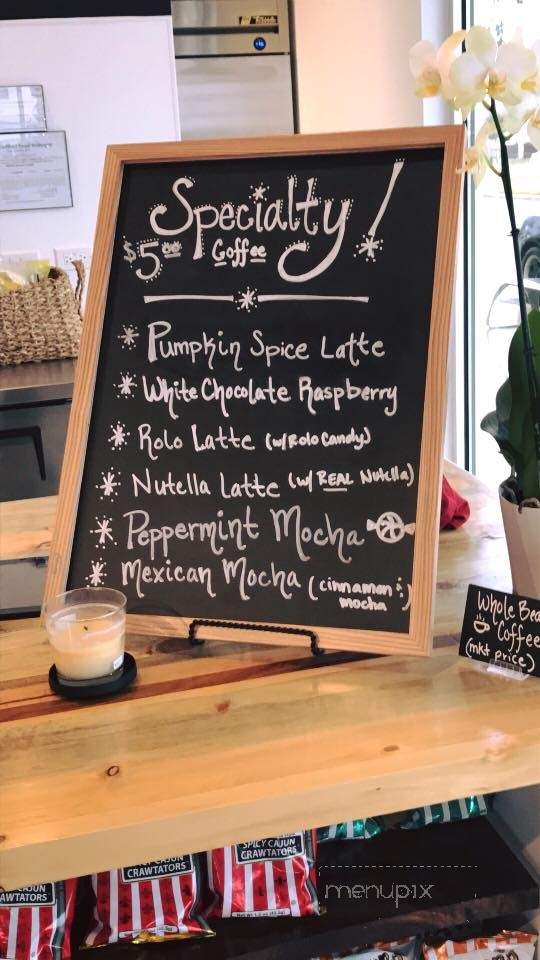 Specialty!
$5.00 Coffee
Pumpkin Spice Latte
White Chocolate Raspberry
Rolo Latte (w/ Rolo Candy)
Nutella Latte (w/ REAL Nutella)
Peppermint Mocha
Mexican Mocha (cinnamon &
mocha)
Whole Bea
Coffee
(mkt price)
SPICY CAJUN
CRAWTATORS
CAJUN
CRAWTATORS
CAJUN
WTATORS
menupix